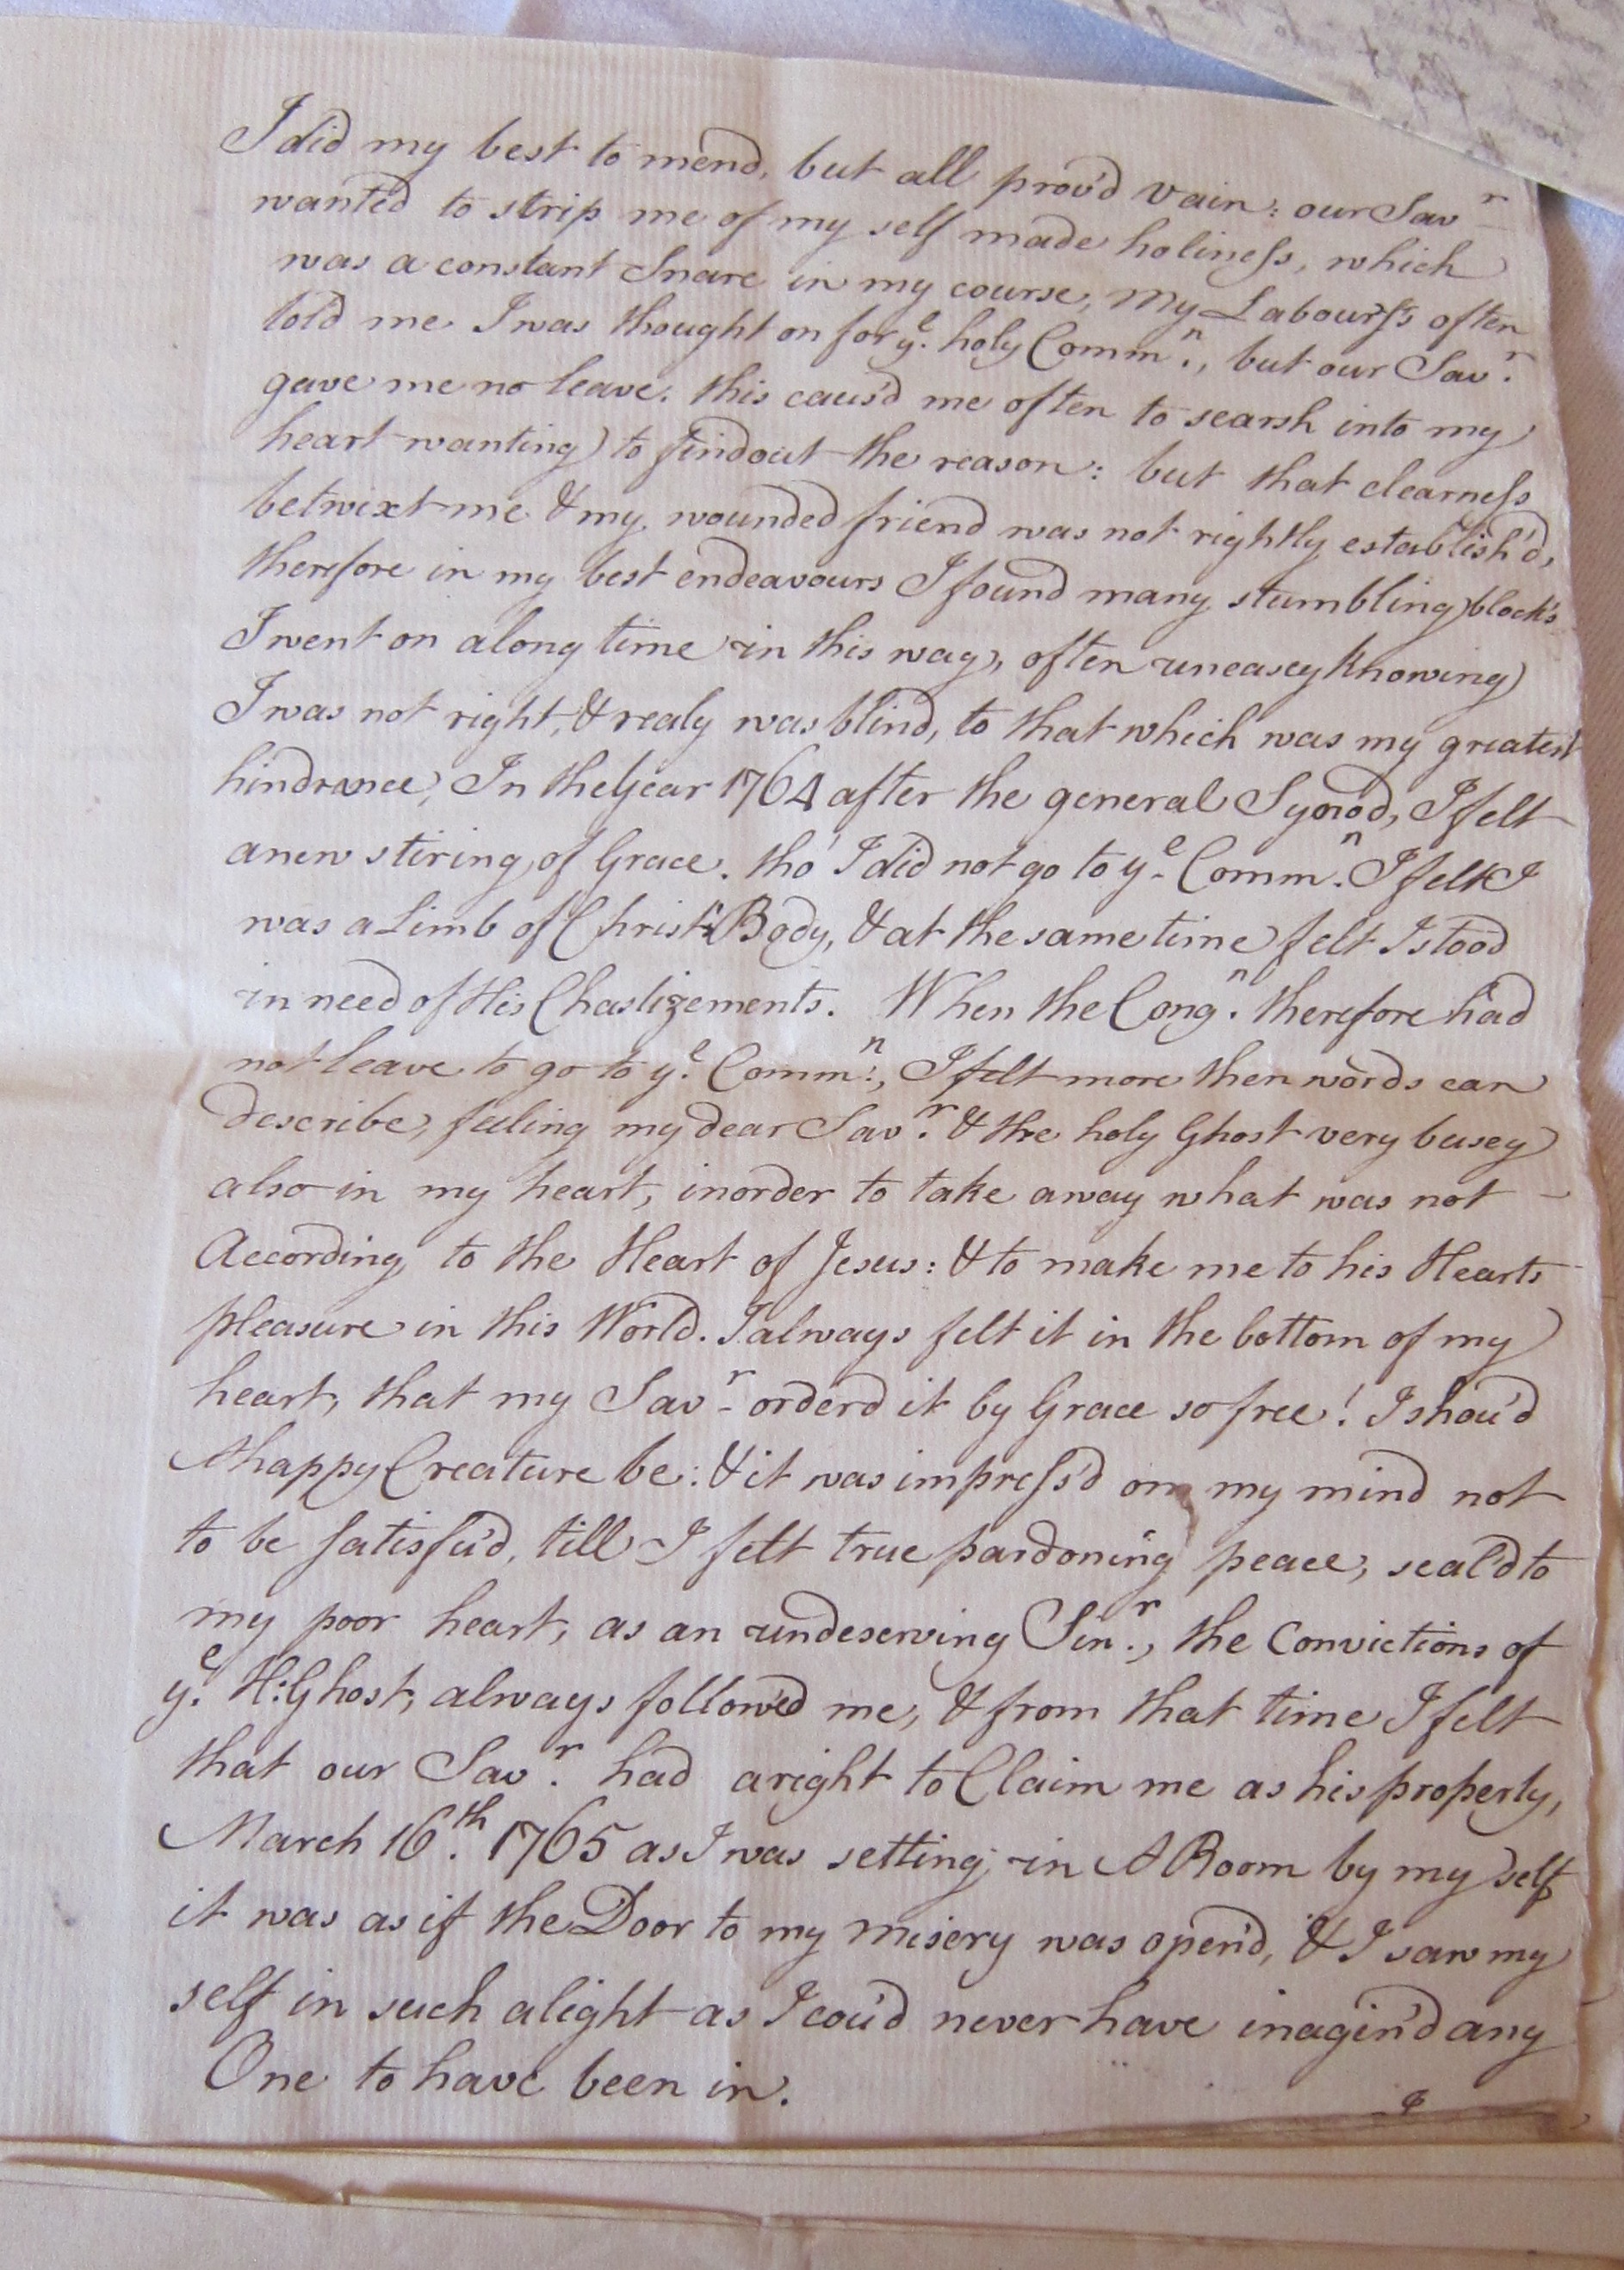 I did my best to mend, but all prov'd vain: our Savr
wanted to strip me of my self made holiness, which
was a constant Snare in my course, My Labouress's often
told me I was thought on for ye. holy Commn., but our Savr.
gave me no leave. this caus'd me often to searsh into my
heart wanting to find out the reason: but that clearness
betwixt me & my wounded friend was not rightly establish'd,
therefore in my best endeavours I found many stumbling block's
I went on a long time in this way, often uneasey knowing
I was not right, & realy was blind, to that which was my greatest
hindrance, In the Year 1764 after the general Synod, I felt
a new stiring of Grace. tho' I did not go to ye. Commn. I felt I
was a Limb of Christ's Body, & at the same time felt I stood
in need of His Chastizements. When the Congn. therefore had
not leave to go to ye. Commn., I felt more then words can
describe, feeling my dear Savr. & the holy Ghost very busey
also in my heart, in order to take away what was not
According to the Heart of Jesus: & to make me to his Hearts
pleasure in this World. I always felt it in the bottom of my
heart, that my Savr. orderd it by Grace so free! I shou'd
A happy Creature be: & it was impress'd on my mind not
to be satisfii'd, till I felt true pardoning peace, seal'd to
my poor heart, as an undeserving Sinr., the Convictions of
ye. H: Ghost, always follow'd me, & from that time I felt
that our Savr. had a right to Claim me as his property,
March 16th. 1765 as I was setting in A Room by my self
it was as if the Door to my misery was open'd, & I saw my
self in such a light as I cou'd never have inagin'd any
One to have been in.
I